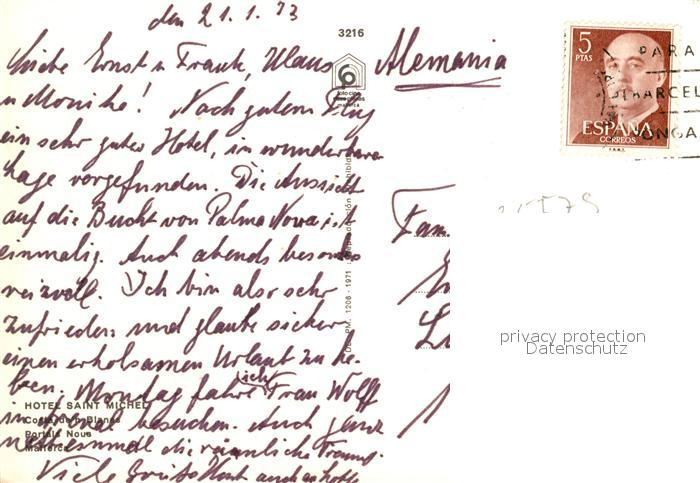 den 21.1.73
3216
Liebe Ernst u Frank, Klaus
Alemania
u Monika! Nach gutem Flug
ein sehr guter Hotel, in wunderbare
Lage vorgefunden. Die Aussicht
auf die Bucht von Palma Nova ist
einmalig. Auch abends besonders
reizvoll. Ich bin also sehr
zufrieden und glaube sicher
einen erholsamen Urlaub zu ha-
ben. Montag fahre ich Frau Wolff
in besuchen. Auch ganz
die räumliche
Viele Grüße
HOTEL SAINT MICHEL
Costa de'n Blanes
Portals Nous
Mallorca
D.L. PM. 1206 - 1971
5
PTAS
ESPAÑA
CORREOS
PARA
BARCEL
ONGA
Fam.
privacy protection
Datenschutz